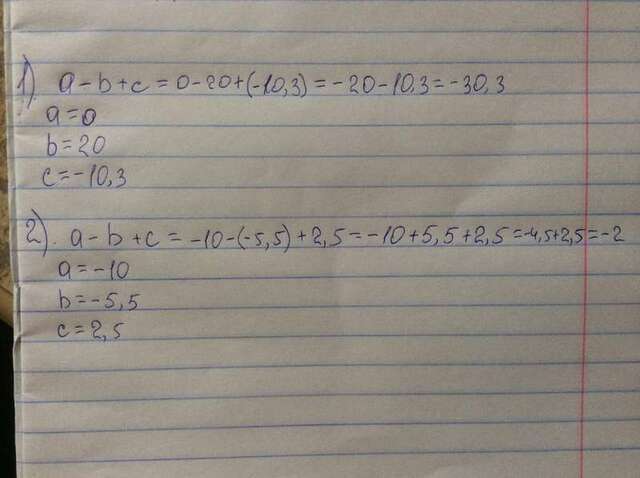 1) a-b+c=0-20+(-10,3)=-20-10,3=-30,3
a=0
b=20
c=-10,3
2). a-b+c=-10-(-5,5)+2,5=-10+5,5+2,5=-4,5+2,5=-2
a=-10
b=-5,5
c=2,5